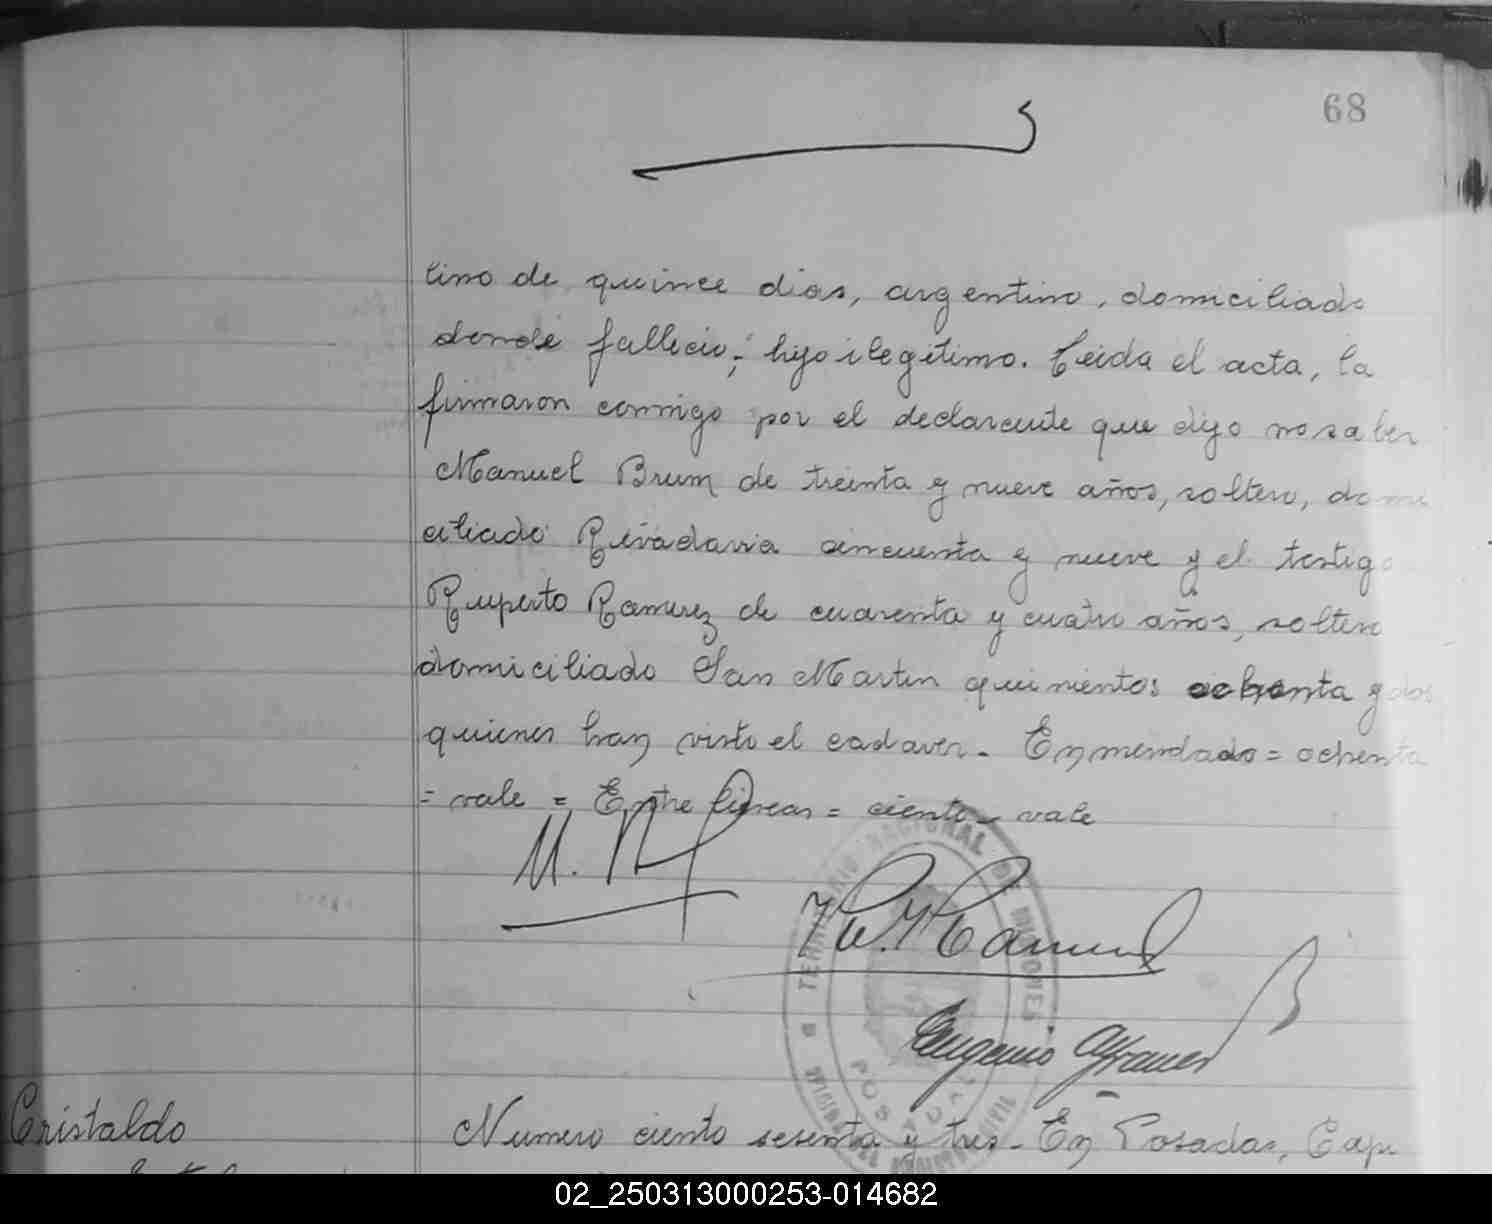 68
lino de quince dias, argentino, domiciliado
donde fallecio; hijo ilegitimo. Leida el acta, la
firmaron conmigo por el declarante que dijo no saber
Manuel Brum de treinta y nueve años, soltero, domi
ciliado Rivadavia cincuenta y nueve y el testigo
Ruperto Ramirez de cuarenta y cuatro años, soltero
domiciliado San Martin quinientos ochenta y dos
quienes han visto el cadaver. Enmendado = ochenta
= vale = Entre lineas = ciento = vale
M.
Eugenio
TERRITORIO NACIONAL DE MISIONES
POSADAS
Cristaldo
Numero ciento sesenta y tres - En Posadas, Capi
02_250313000253-014682